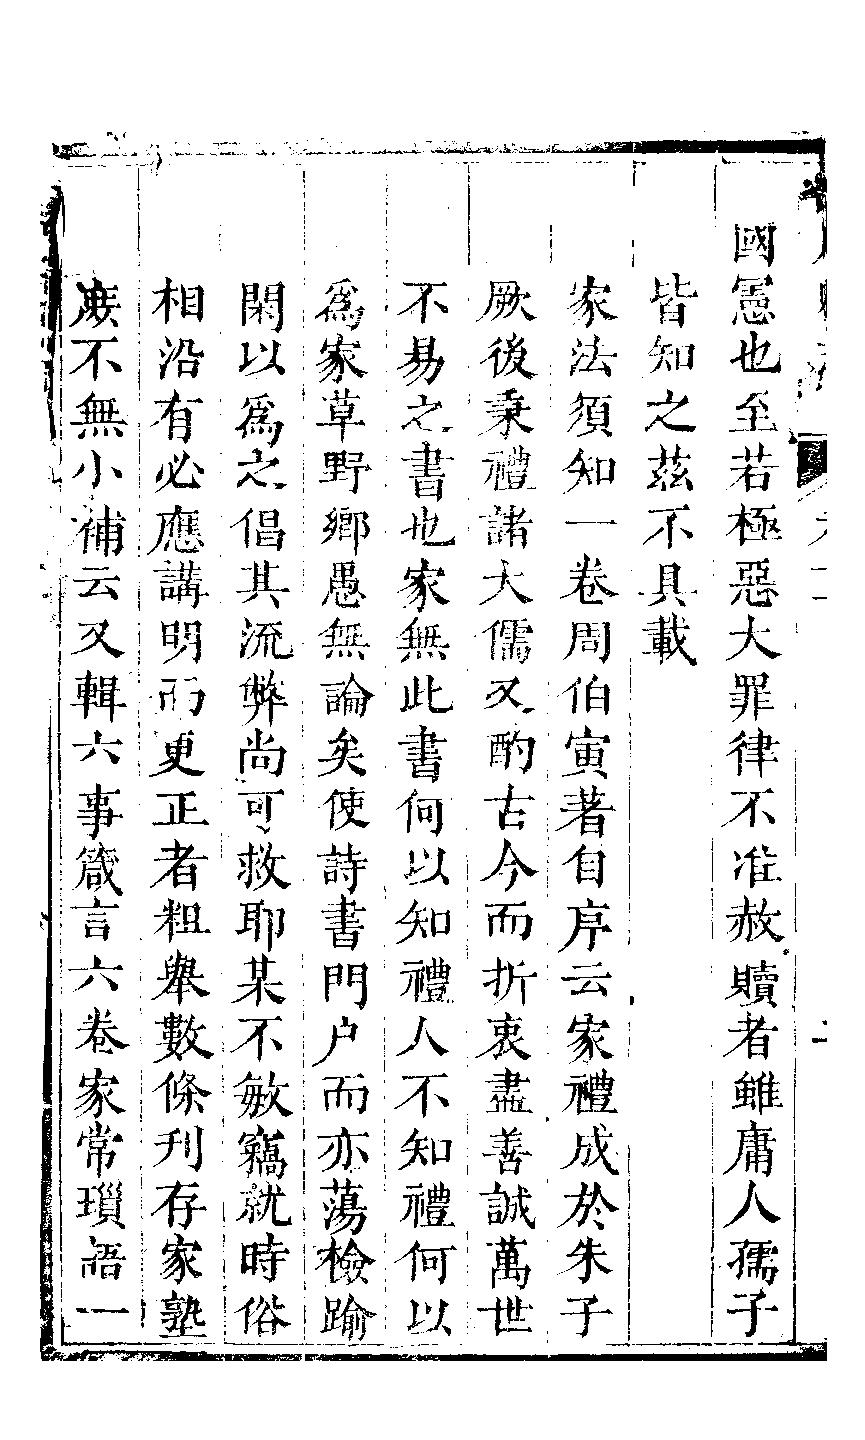 國憲也至若極惡大罪律不准赦贖者雖庸人孺子
皆知之茲不具載
家法須知一卷周伯寅著自序云家禮成於朱子
厥後秉禮諸大儒又酌古今而折衷盡善誠萬世
不易之書也家無此書何以知禮人不知禮何以
爲家草野鄉愚無論矣使詩書門户而亦蕩檢踰
閑以爲之倡其流弊尚可救耶某不敏竊就時俗
相沿有必應講明而更正者粗舉數條刋存家塾
庻不無小補云又輯六事箴言六卷家常瑣語一